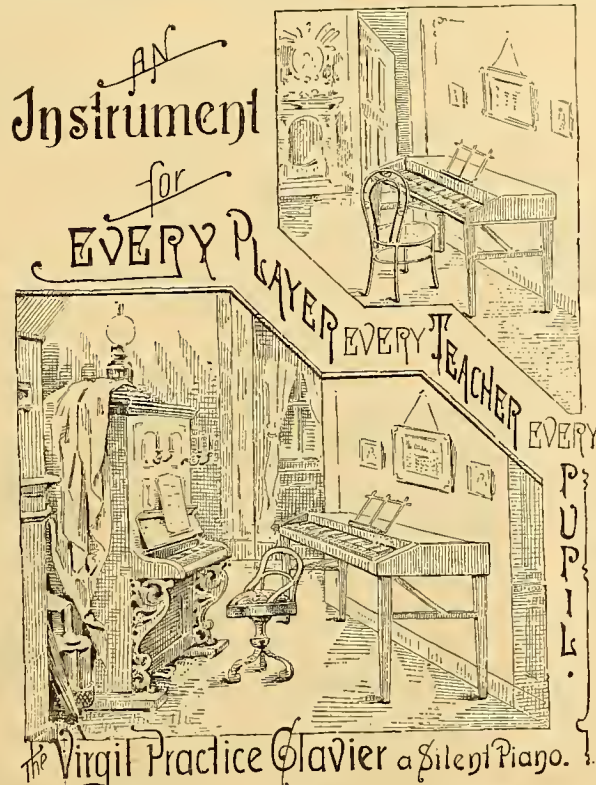 AN
Instrument
for
EVERY PLAYER EVERY TEACHER EVERY
PUPIL.
The Virgil Practice Clavier a Silent Piano.